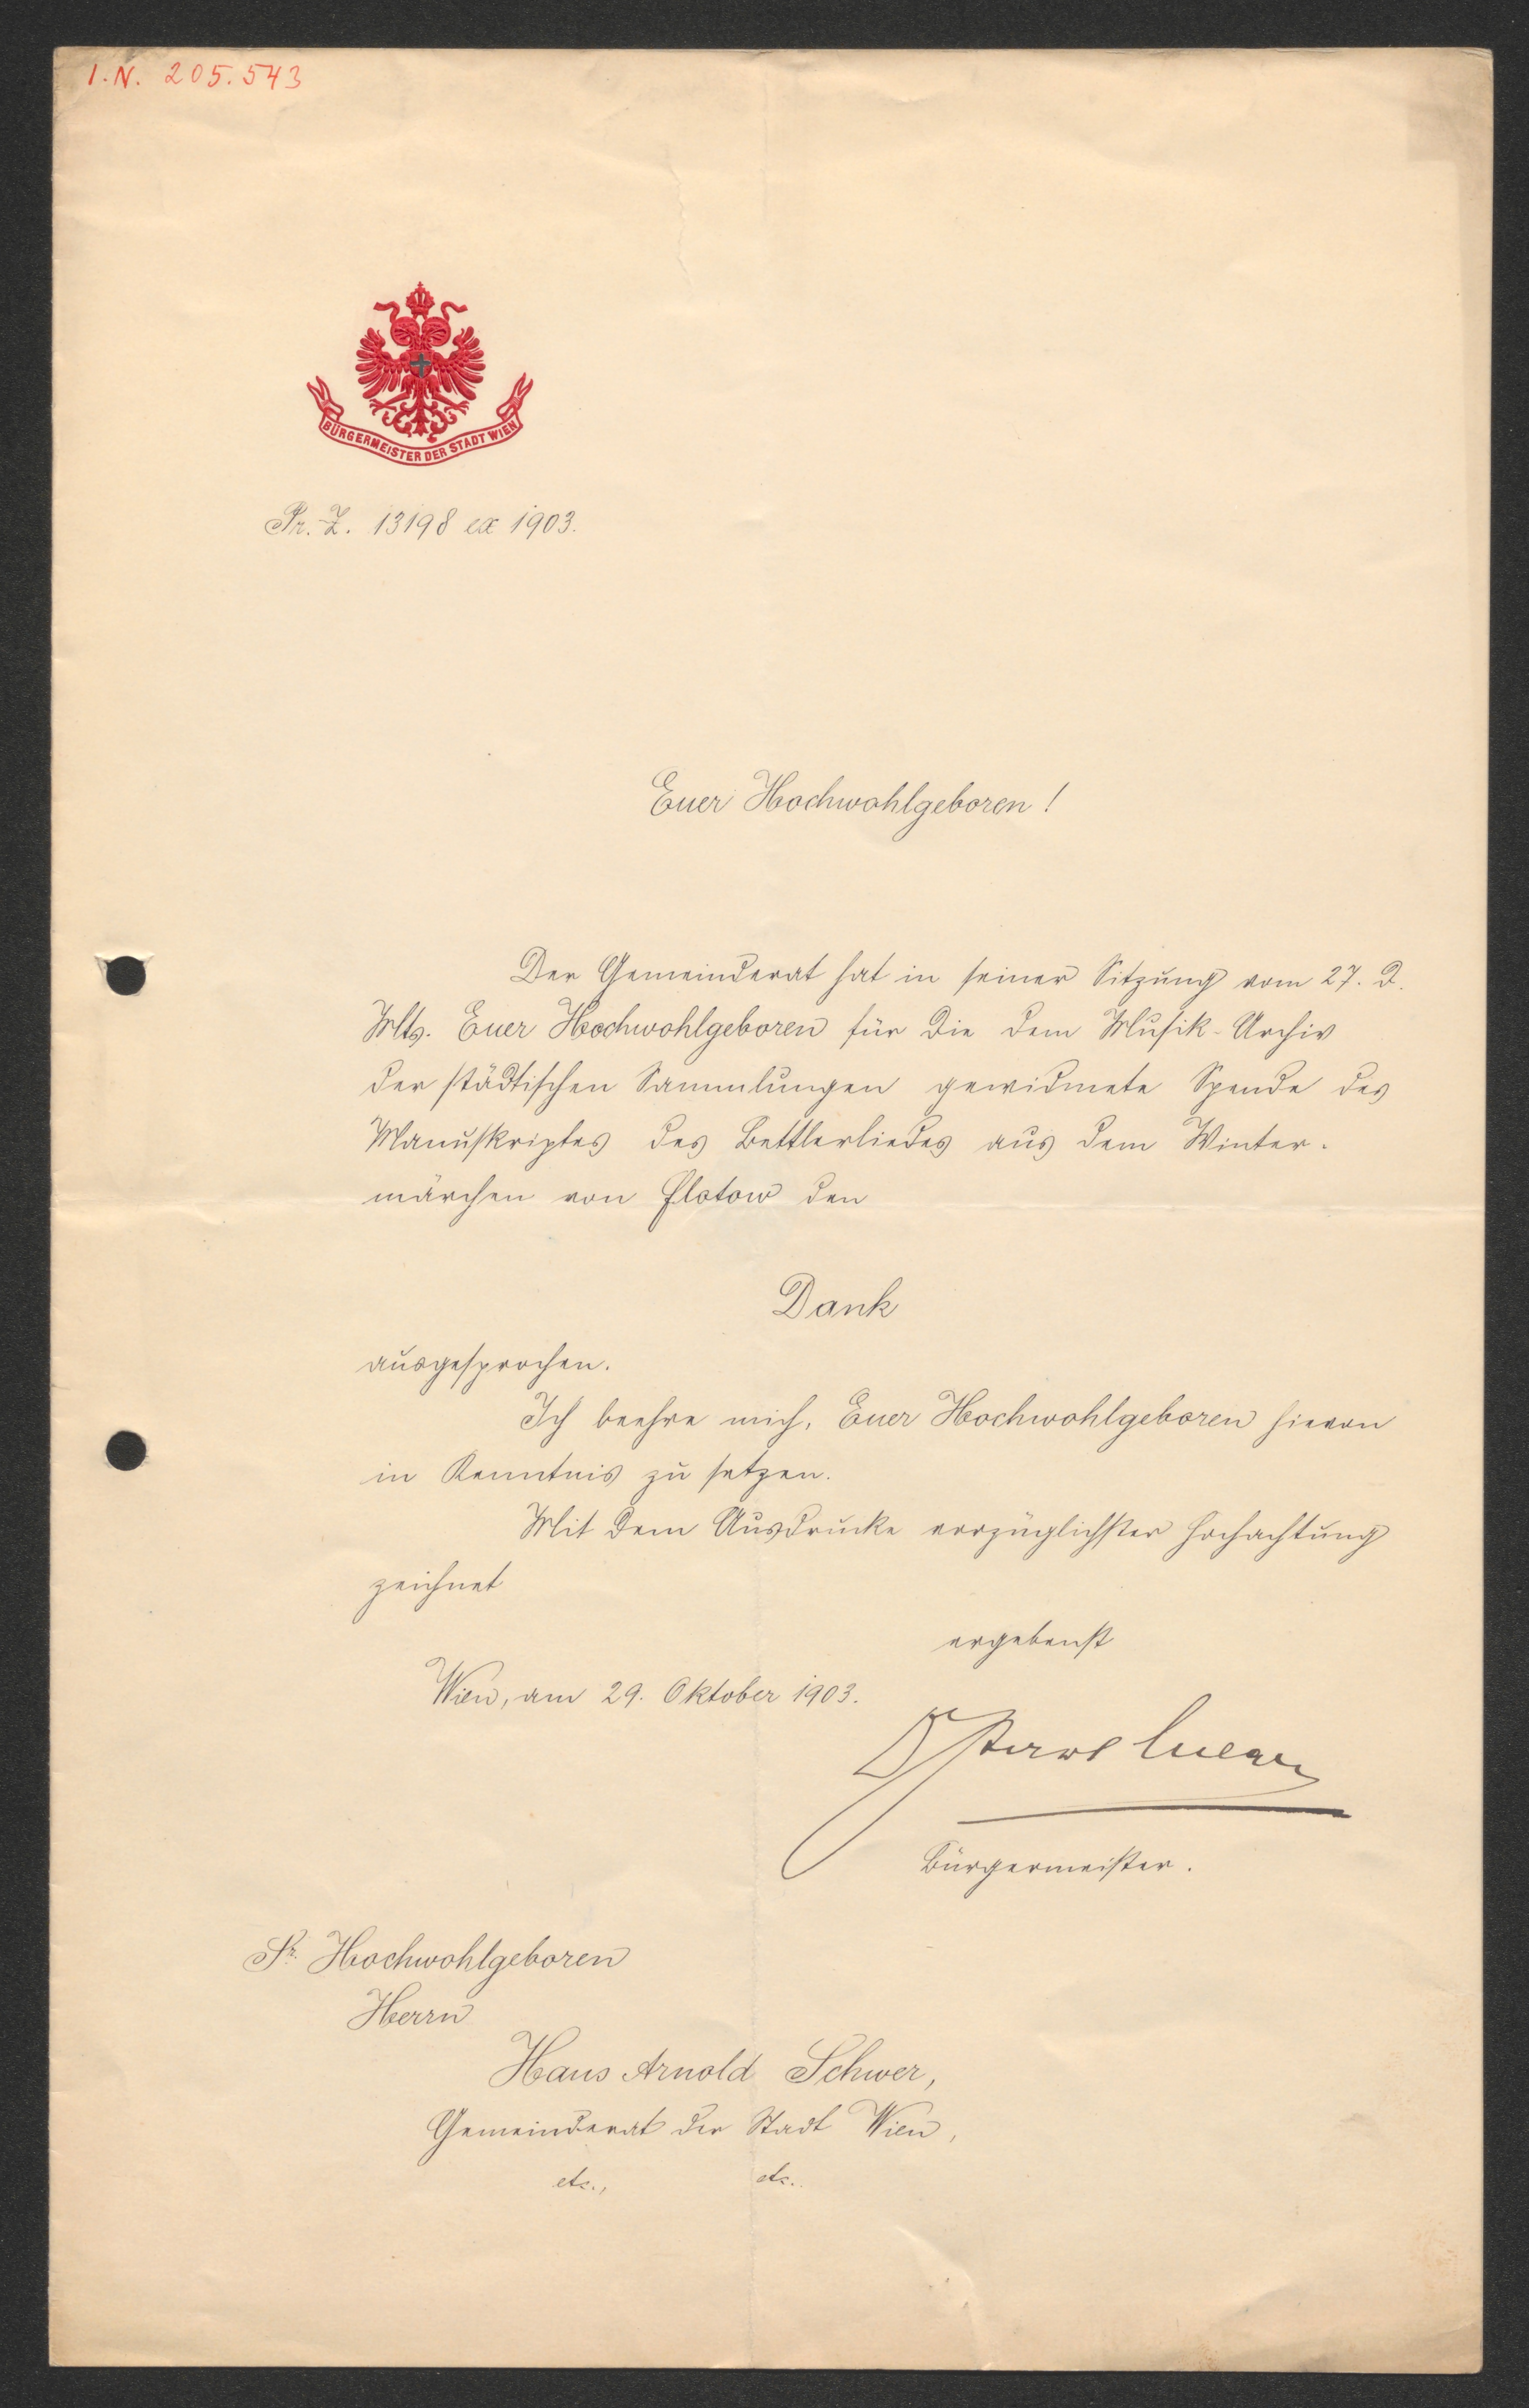 I.N. 205.543
BÜRGERMEISTER DER STADT WIEN
Pr. Z. 13198 ex 1903.
Euer Hochwohlgeboren!
Der Gemeinderat hat in seiner Sitzung vom 27. d.
Mts. Euer Hochwohlgeboren für die dem Musik-Archiv
der städtischen Sammlungen gewidmete Spende des
Manuskriptes des Bettlerliedes aus dem Winter-
märchen von Flotow den
Dank
ausgesprochen.
Ich beehre mich, Euer Hochwohlgeboren hievon
in Kenntnis zu setzen.
Mit dem Ausdrucke vorzüglichster Hochachtung
zeichnet
ergebenst
Wien, am 29. Oktober 1903.
Dr Karl Lueger
Bürgermeister.
Sr. Hochwohlgeboren
Herrn
Hans Arnold Schwer,
Gemeinderat der Stadt Wien,
etc., etc.